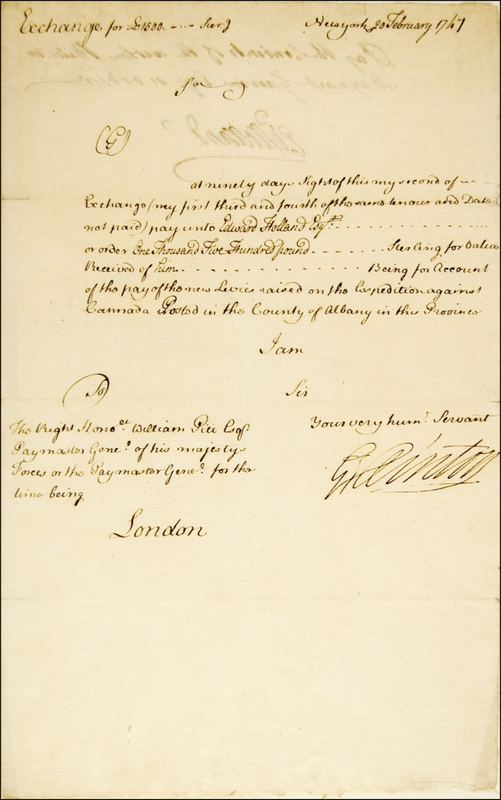 Exchange for £1500 .... Ster.g New york 20 February 1747
Sor
at ninety days Sight of this my second of
Exchange (my first third and fourth of the same tenour and Date
not paid) pay unto Edward Holland Esq.r
or order One Thousand Five Hundred pound Sterling for Value
Received of him Being for Account
of the pay of the new Levies raised on the Expedition against
Cannada Posted in the County of Albany in this Province
I am
Sir
Your very hum.l Servant
G Clinton
To
The Right Hono.ble William Pitt Esq.r
Paymaster Gene.l of his majestys
Forces or the Paymaster Gene.l for the
time being
London